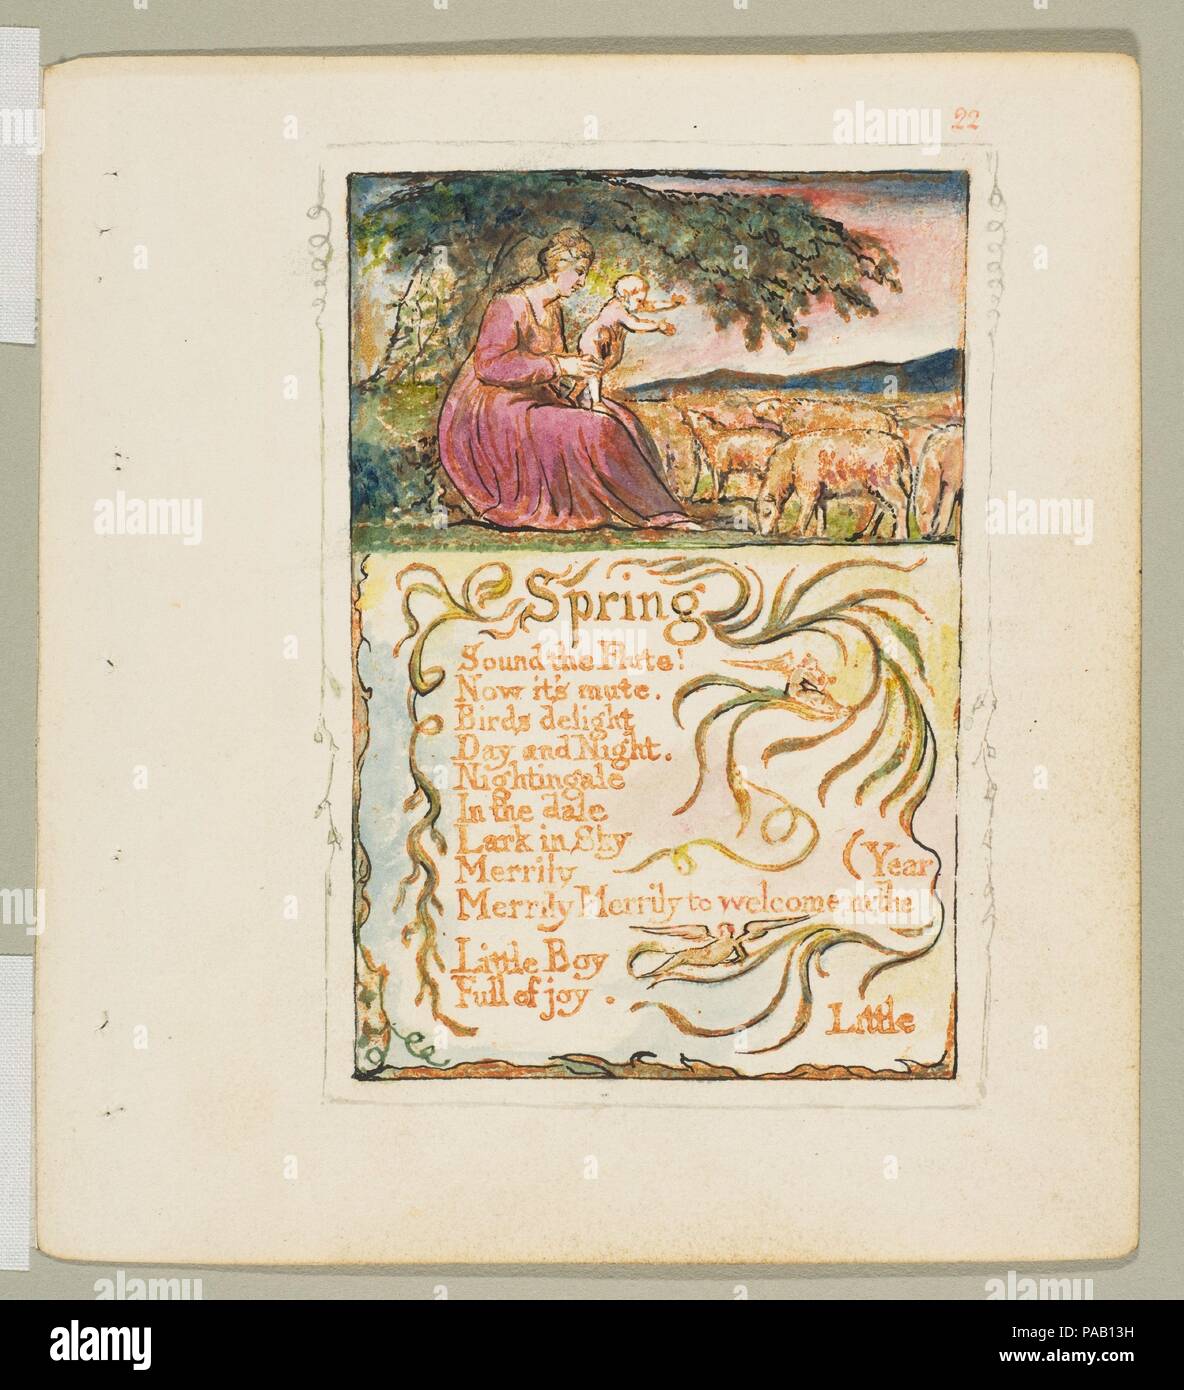 22
Spring
Sound the Flute!
Now it's mute.
Birds delight
Day and Night.
Nightingale
In the dale
Lark in Sky
Merrily
(Year
Merrily Merrily to welcome in the
Little Boy
Full of joy.
Little
alamy
alamy stock photo
Image ID: PAB13H
www.alamy.com